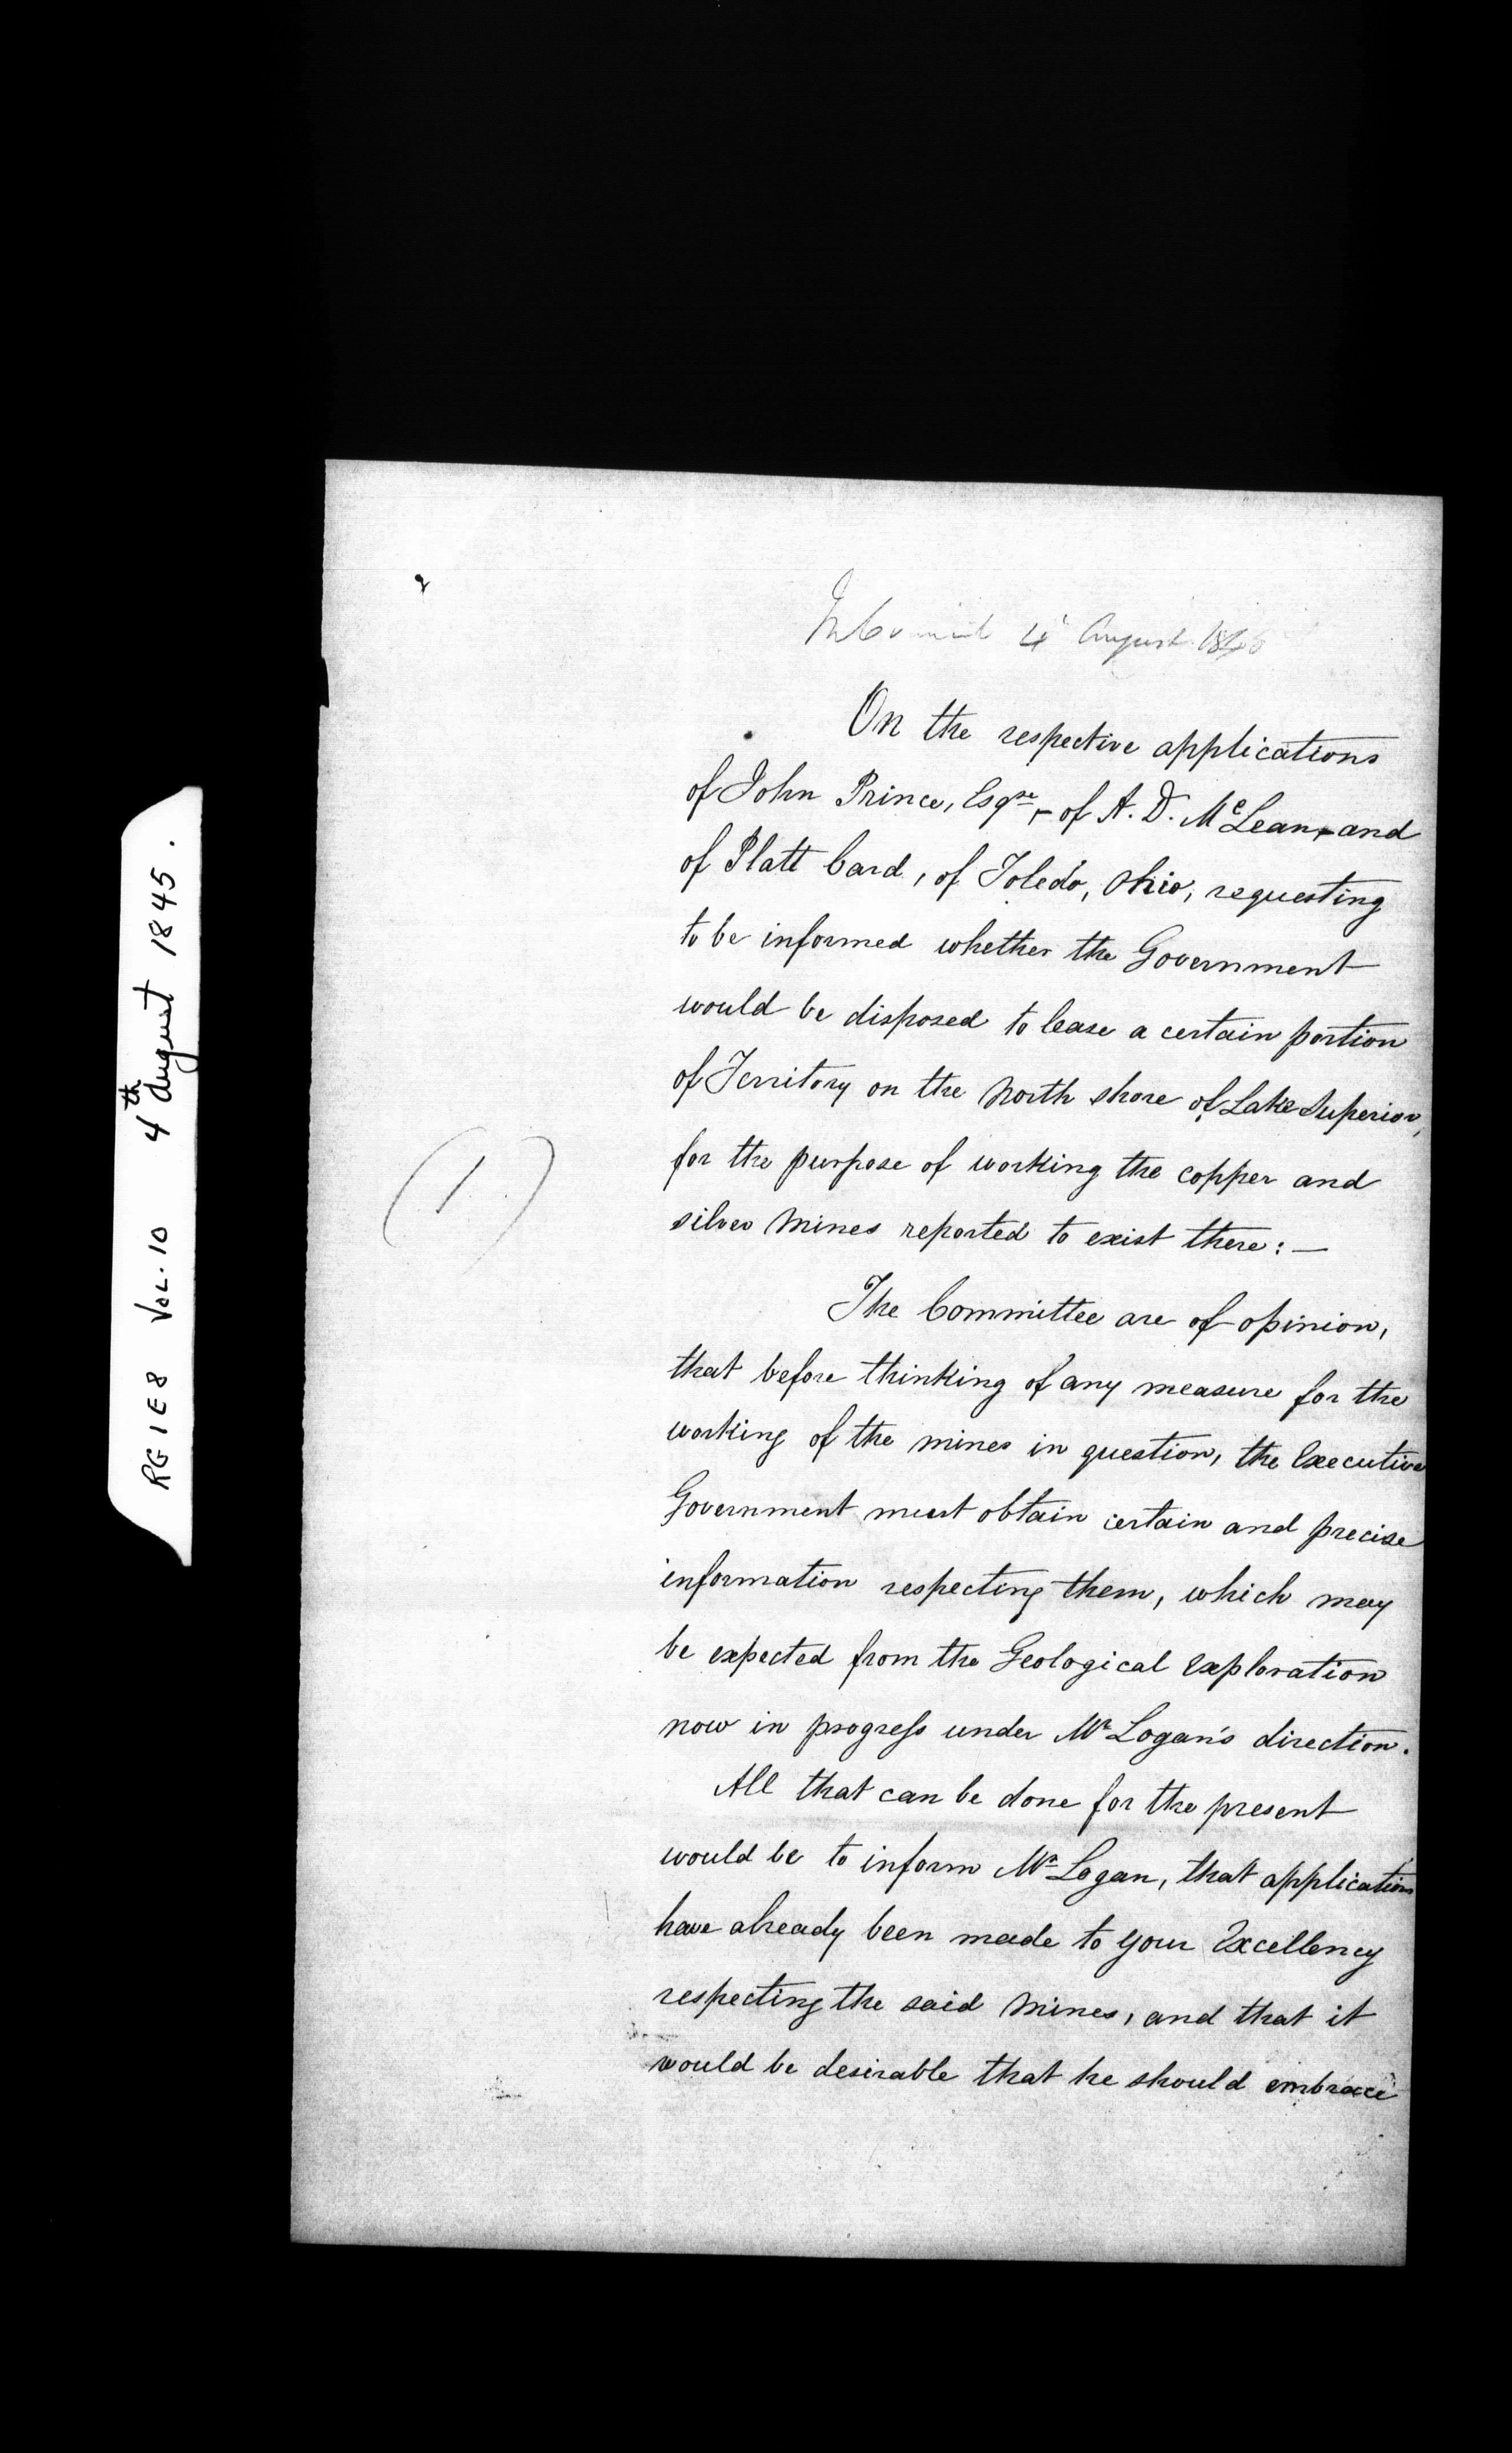 RG 1 E 8 VOL. 10 4th August 1845.
In Council 4 August 1845
On the respective applications
of John Prince, Esqre, – of A. D. McLean, – and
of Platt Card, of Toledo, Ohio, requesting
to be informed whether the Government
would be disposed to lease a certain portion
of Territory on the North shore of Lake Superior,
for the purpose of working the copper and
silver Mines reported to exist there: —
(1)
The Committee are of opinion,
that before thinking of any measure for the
working of the mines in question, the Executive
Government must obtain certain and precise
information respecting them, which may
be expected from the Geological Exploration
now in progress under Mr Logan's direction.
All that can be done for the present
would be to inform Mr Logan, that applications
have already been made to Your Excellency
respecting the said Mines, and that it
would be desirable that he should embrace